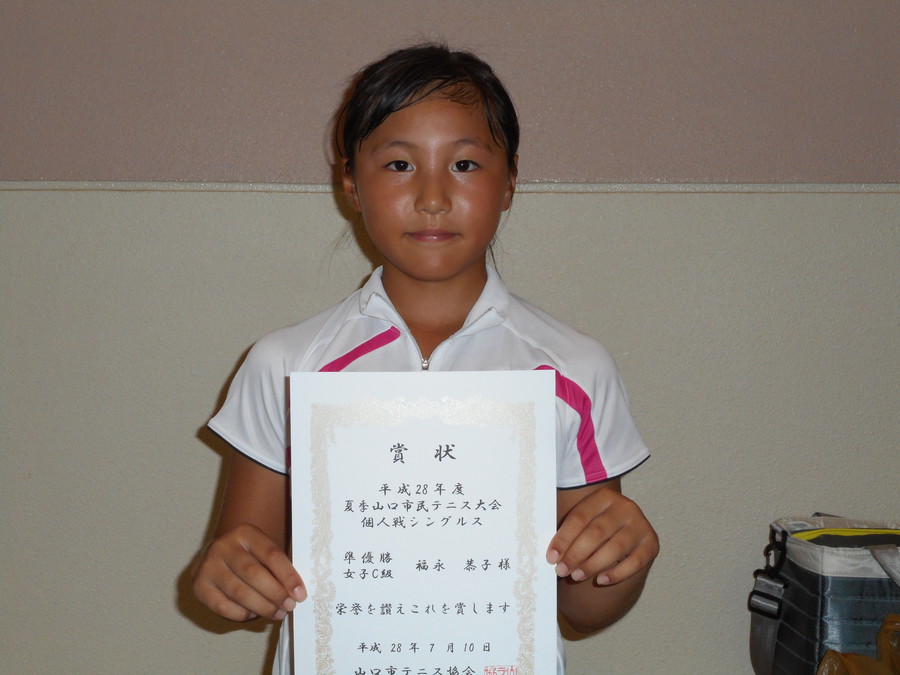 賞状
平成28年度
夏季山口市民テニス大会
個人戦シングルス
準優勝
女子C級 福永 恭子様
栄誉を讃えこれを賞します
平成28年7月10日
山口市テニス協会